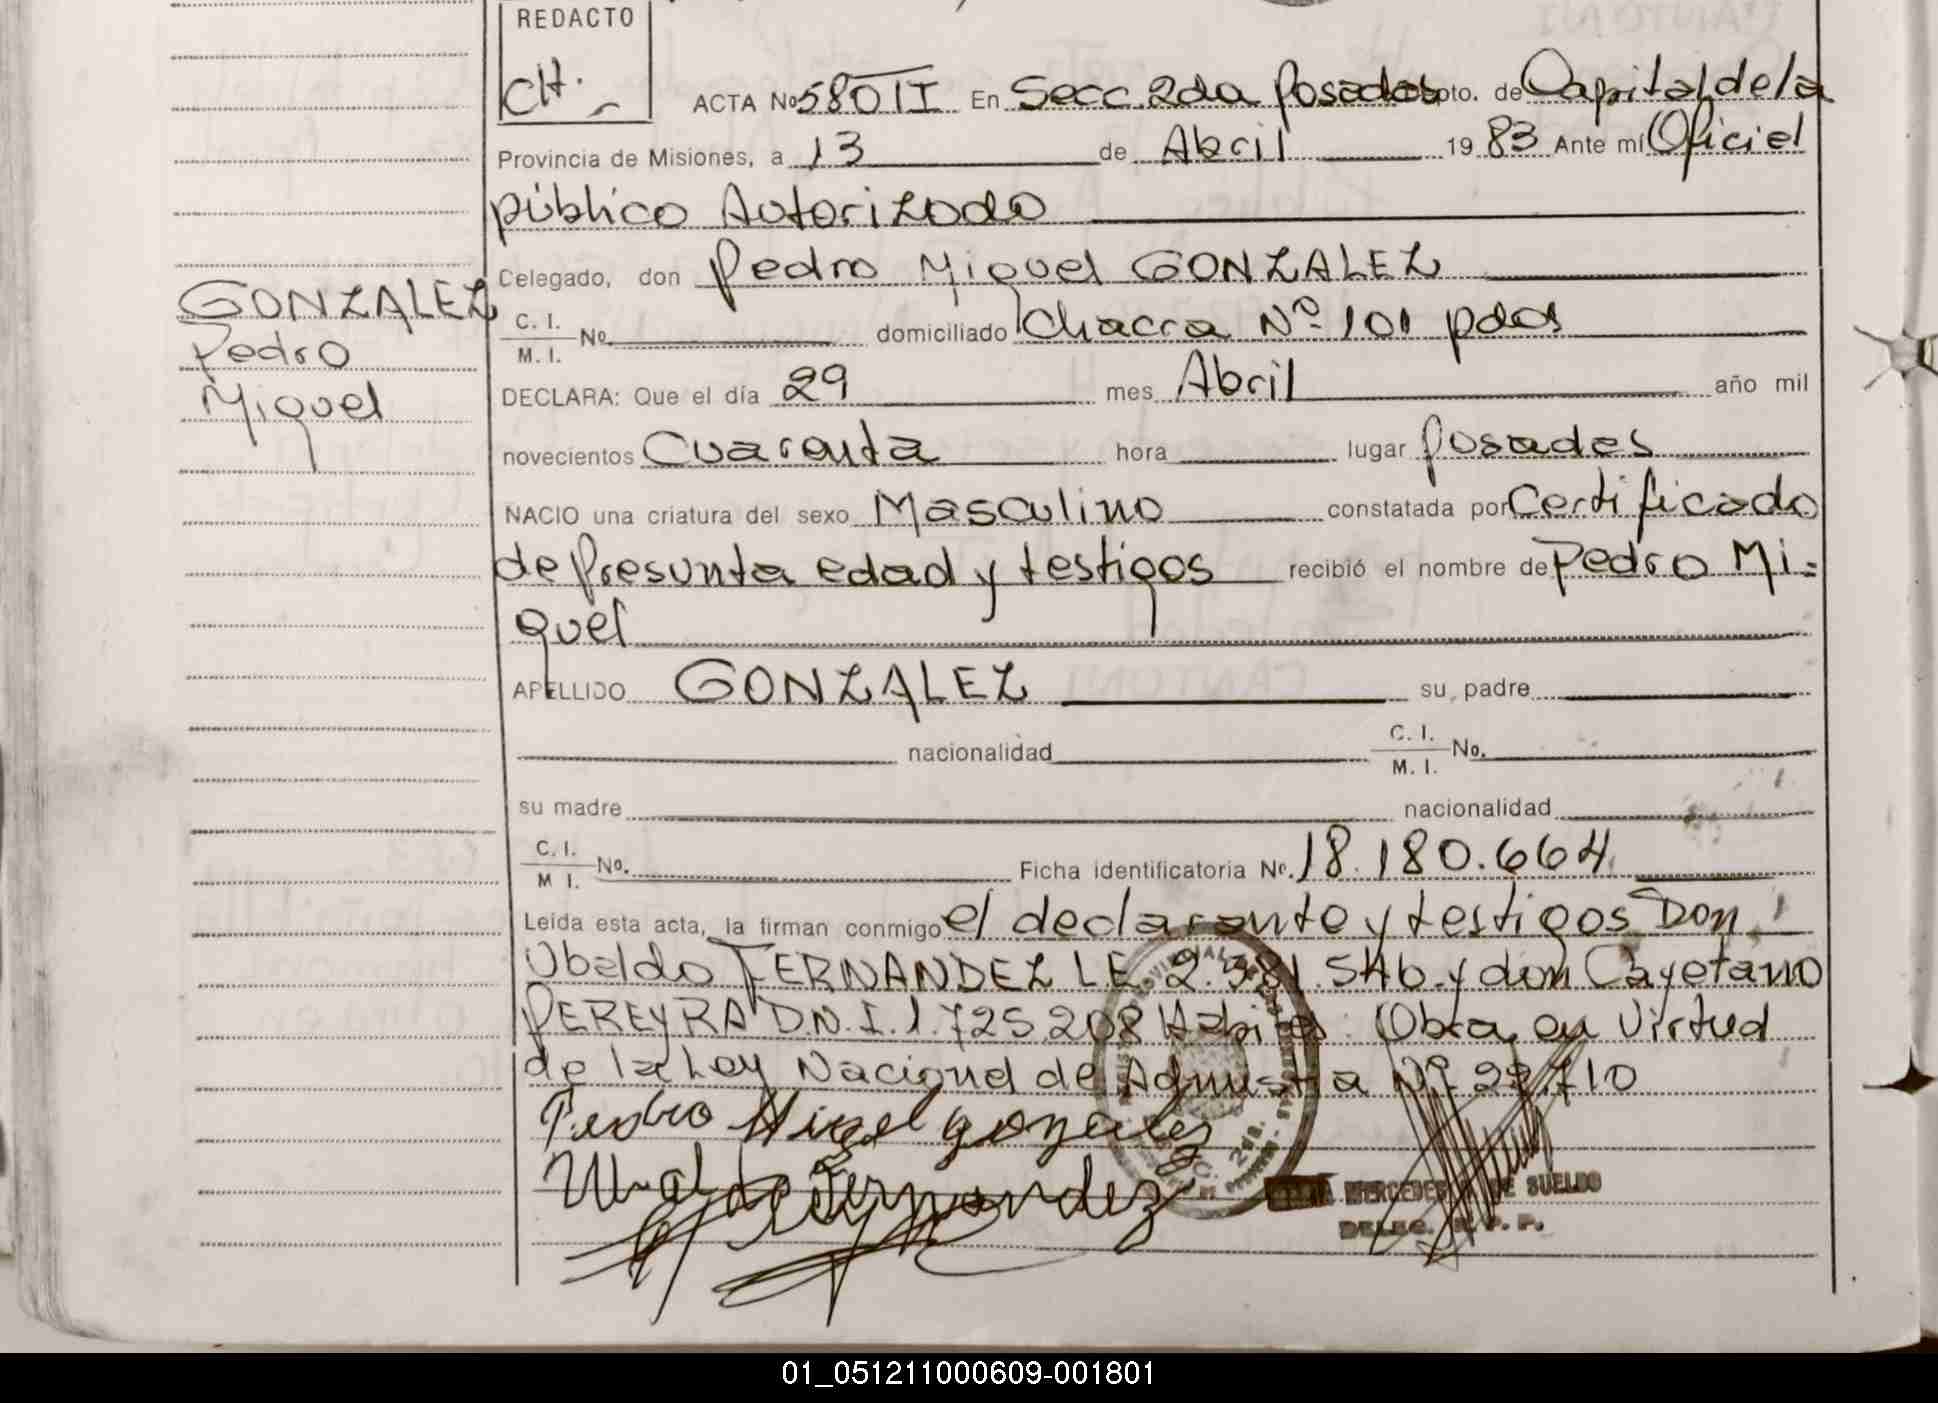 REDACTO
CH.
ACTA No 580 TI En Secc. 2da Posadas Dpto. de Capital de la
Provincia de Misiones, a 13 de Abril 1983 Ante mí Oficiel
público Autorizado
Celegado, don Pedro Miguel GONZALEZ
GONZALEZ
Pedro
Miguel
C. I.
M. I. No. domiciliado Chacra Nº 101 pdas
DECLARA: Que el día 29 mes Abril año mil
novecientos Cuarenta hora lugar Posadas
NACIO una criatura del sexo Masculino constatada por Certificado
de Presunta edad y testigos recibió el nombre de Pedro Mi=
guel
APELLIDO GONZALEZ su padre
nacionalidad C. I.
M. I. No.
su madre nacionalidad
C. I.
M I. No. Ficha identificatoria No. 18.180.664
Leída esta acta, la firman conmigo el declarante y testigos Don
Ubaldo FERNANDEZ LE 2.581.546. y don Cayetano
PEREYRA D.N.I. 1.725.208 Habiles. Obra en Virtud
de la Ley Nacional de Admistia Nº 22.710
Pedro Migel gonzalez
Ubaldo Fernandez
MERCEDES DE SUELDO
DELEG. R. P. P.
SECC. 2da.
01_051211000609-001801